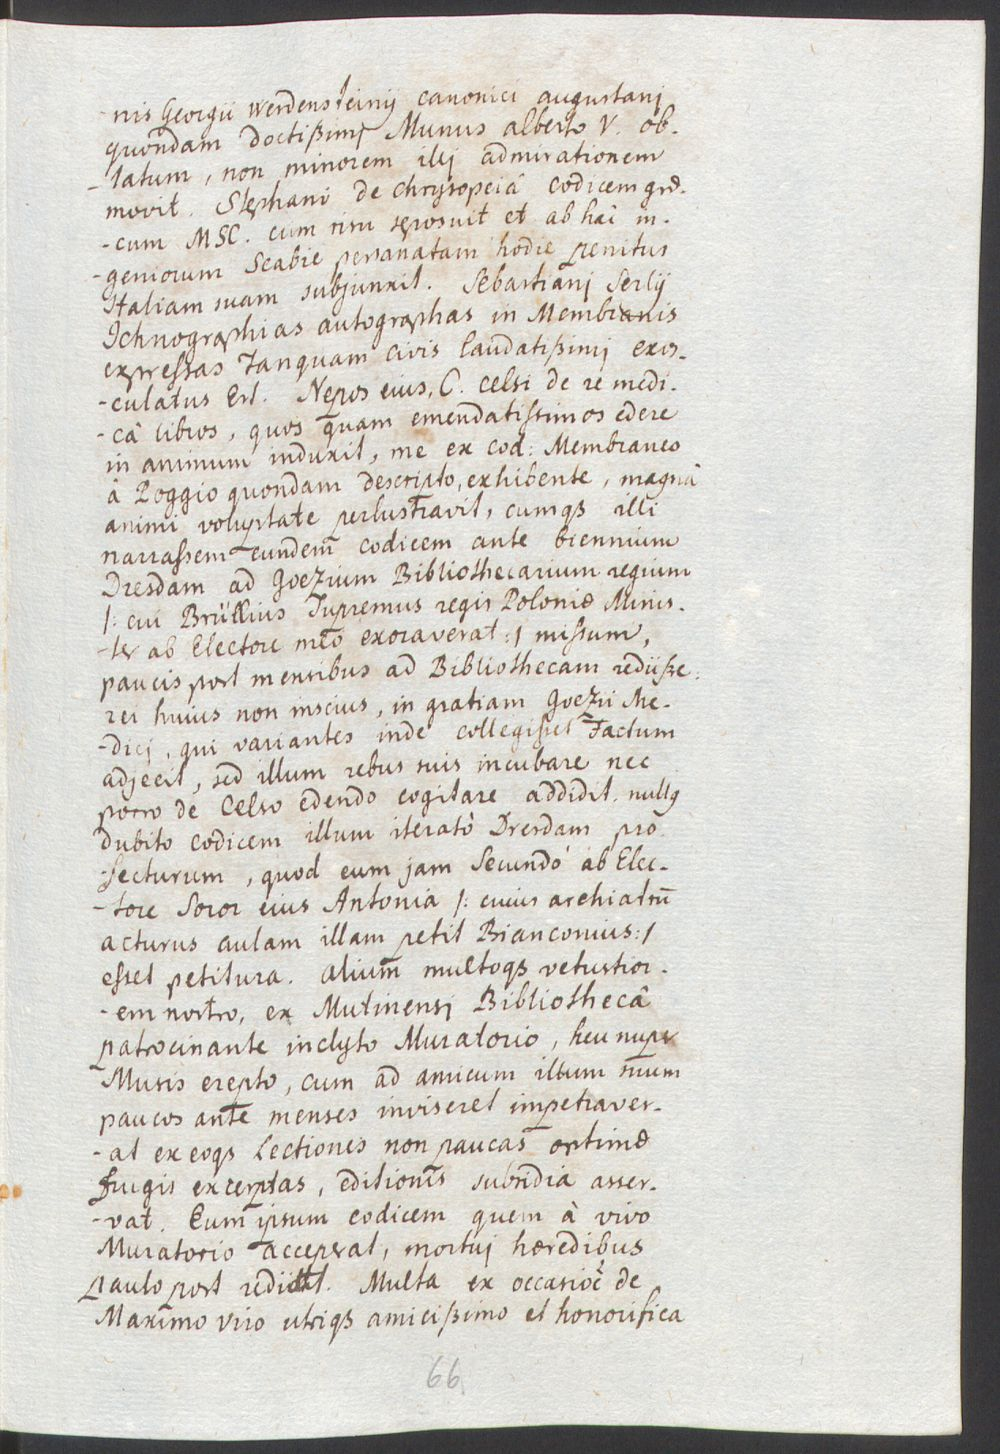 -nis Georgii Werdensteinij canonici augustanj
quondam doctißimj Munus alberto V. ob-
-latum, non minorem illj admirationem
movit. Stephani de chrysopeiâ codicem græ-
-cum MSC. cum risu seposuit et ab hâc in-
-geniorum Scabie persanatam hodie penitus
Italiam suam subjunxit. Sebastianj Serlij
Ichnographias autographas in Membranis
expressas tanquam civis laudatißimj exos-
-culatus Est. Nepos eius, C. Celsi de re medi-
-câ libros, quos quam emendatissimos edere
in animum induxit, me ex cod: Membraneo
â Poggio quondam descripto, exhibente, magnâ
animi voluptate perlustravit, cumqs illi
narrassem eundem codicem ante biennium
Dresdam ad Goezium Bibliothecarium regium
/: cui Brüllius Supremus regis Poloniæ Minis-
-ter ab Electore meo exoraverat :/ missum,
paucis post mensibus ad Bibliothecam rediisse:
rei huius non inscius, in gratiam Goezii Me-
-dicj, qui variantes inde collegisset Factum
adjecit, sed illum rebus suis incubare nec
porro de Celso edendo cogitare addidit. nullus
dubito codicem illum iteratò Dresdam pro-
-fecturum, quod eum jam Secundò ab Elec-
-tore Soror eius Antonia /: cuius archiatrum
acturus aulam illam petit Bianconius :/
esset petitura. Alium multoqs vetustior-
-em nostro, ex Mutinensj Bibliothecâ
patrocinante inclyto Muratorio, heu nuper
Musis erepto, cum ad amicum illum suum
paucos ante menses inviseret impetraver-
-at ex eoqs Lectiones non paucas optimæ
frugis excerptas, editionis subsidia asser-
-vat. Eum ipsum codicem quem à vivo
Muratorio acceperat, mortuj hæredibus
paulo post rediit. Multa ex occasione de
Maximo viro utriqs amicißimo et honorifica
66